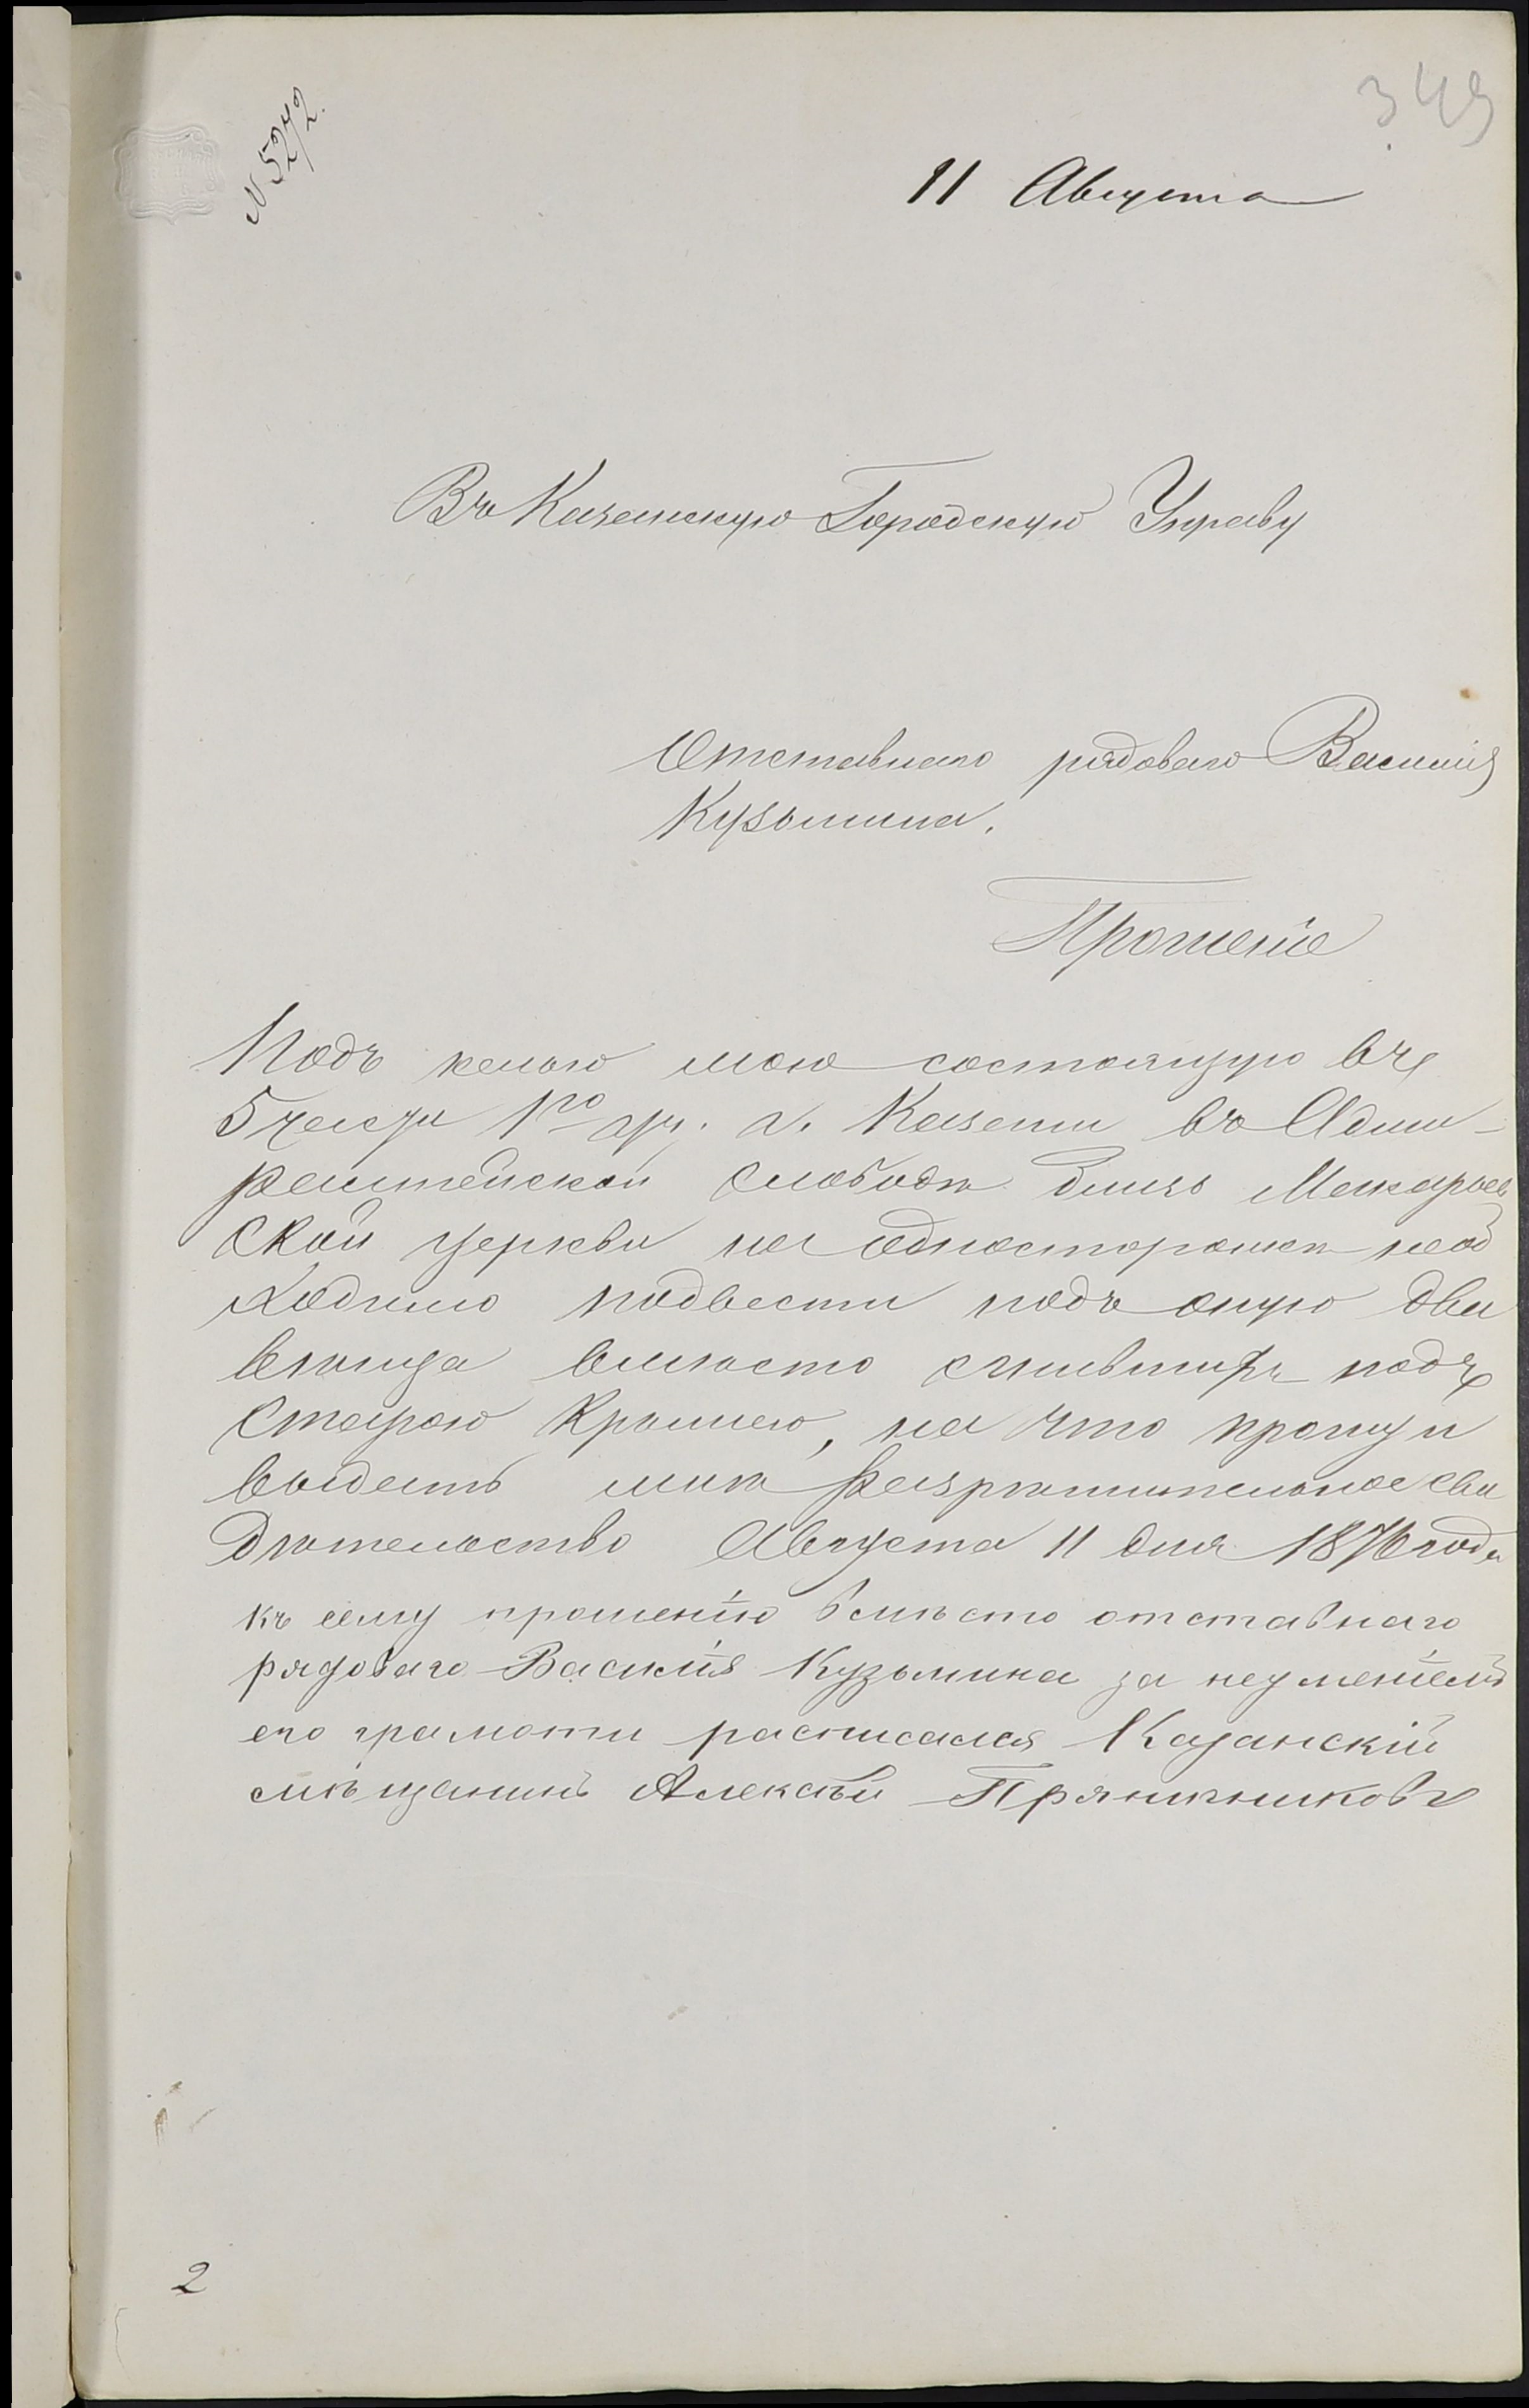 349
N 5272.
11 Августа
Въ Казанскую Городскую Управу
Отставнаго рядоваго Василія
Кузьмина.
Прошеніе
Подъ келью мою состоящую въ
5 части 1го г. Казани въ Адми-
ралтейской слободѣ близь Макарьев
ской церкви на одностороннѣ необ
ходимо подвести подъ оную два
венца вмѣсто сгнившихъ подъ
старою крышею, на что прошу и
выдать мнѣ разрѣшительное сви
дѣтельство Августа 11 дня 1876 года
къ сему прошенію вмѣсто отставнаго
рядоваго Василія Кузьмина за неуменіемъ
его грамоти расписался Казанскій
мѣщанинъ Алексѣй Пряничниковъ
2